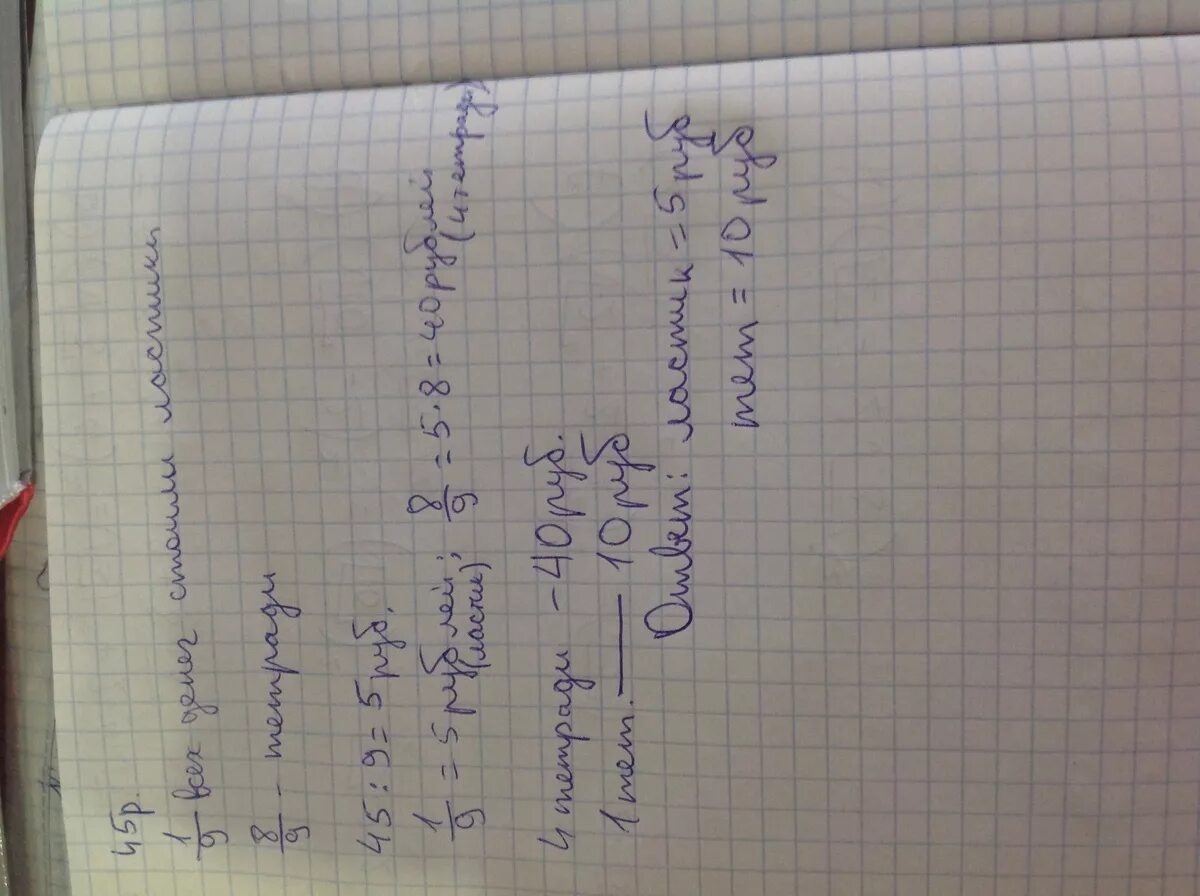 45р.
1/9 всех денег стоили ластики
8/9 - тетради
45:9=5 руб.
1/9 = 5 рублей; 8/9 = 5·8=40 рублей
(ластик) (4 тетради)
4 тетради - 40 руб.
1 тет. — 10 руб
Ответ: ластик = 5 руб
тет = 10 руб